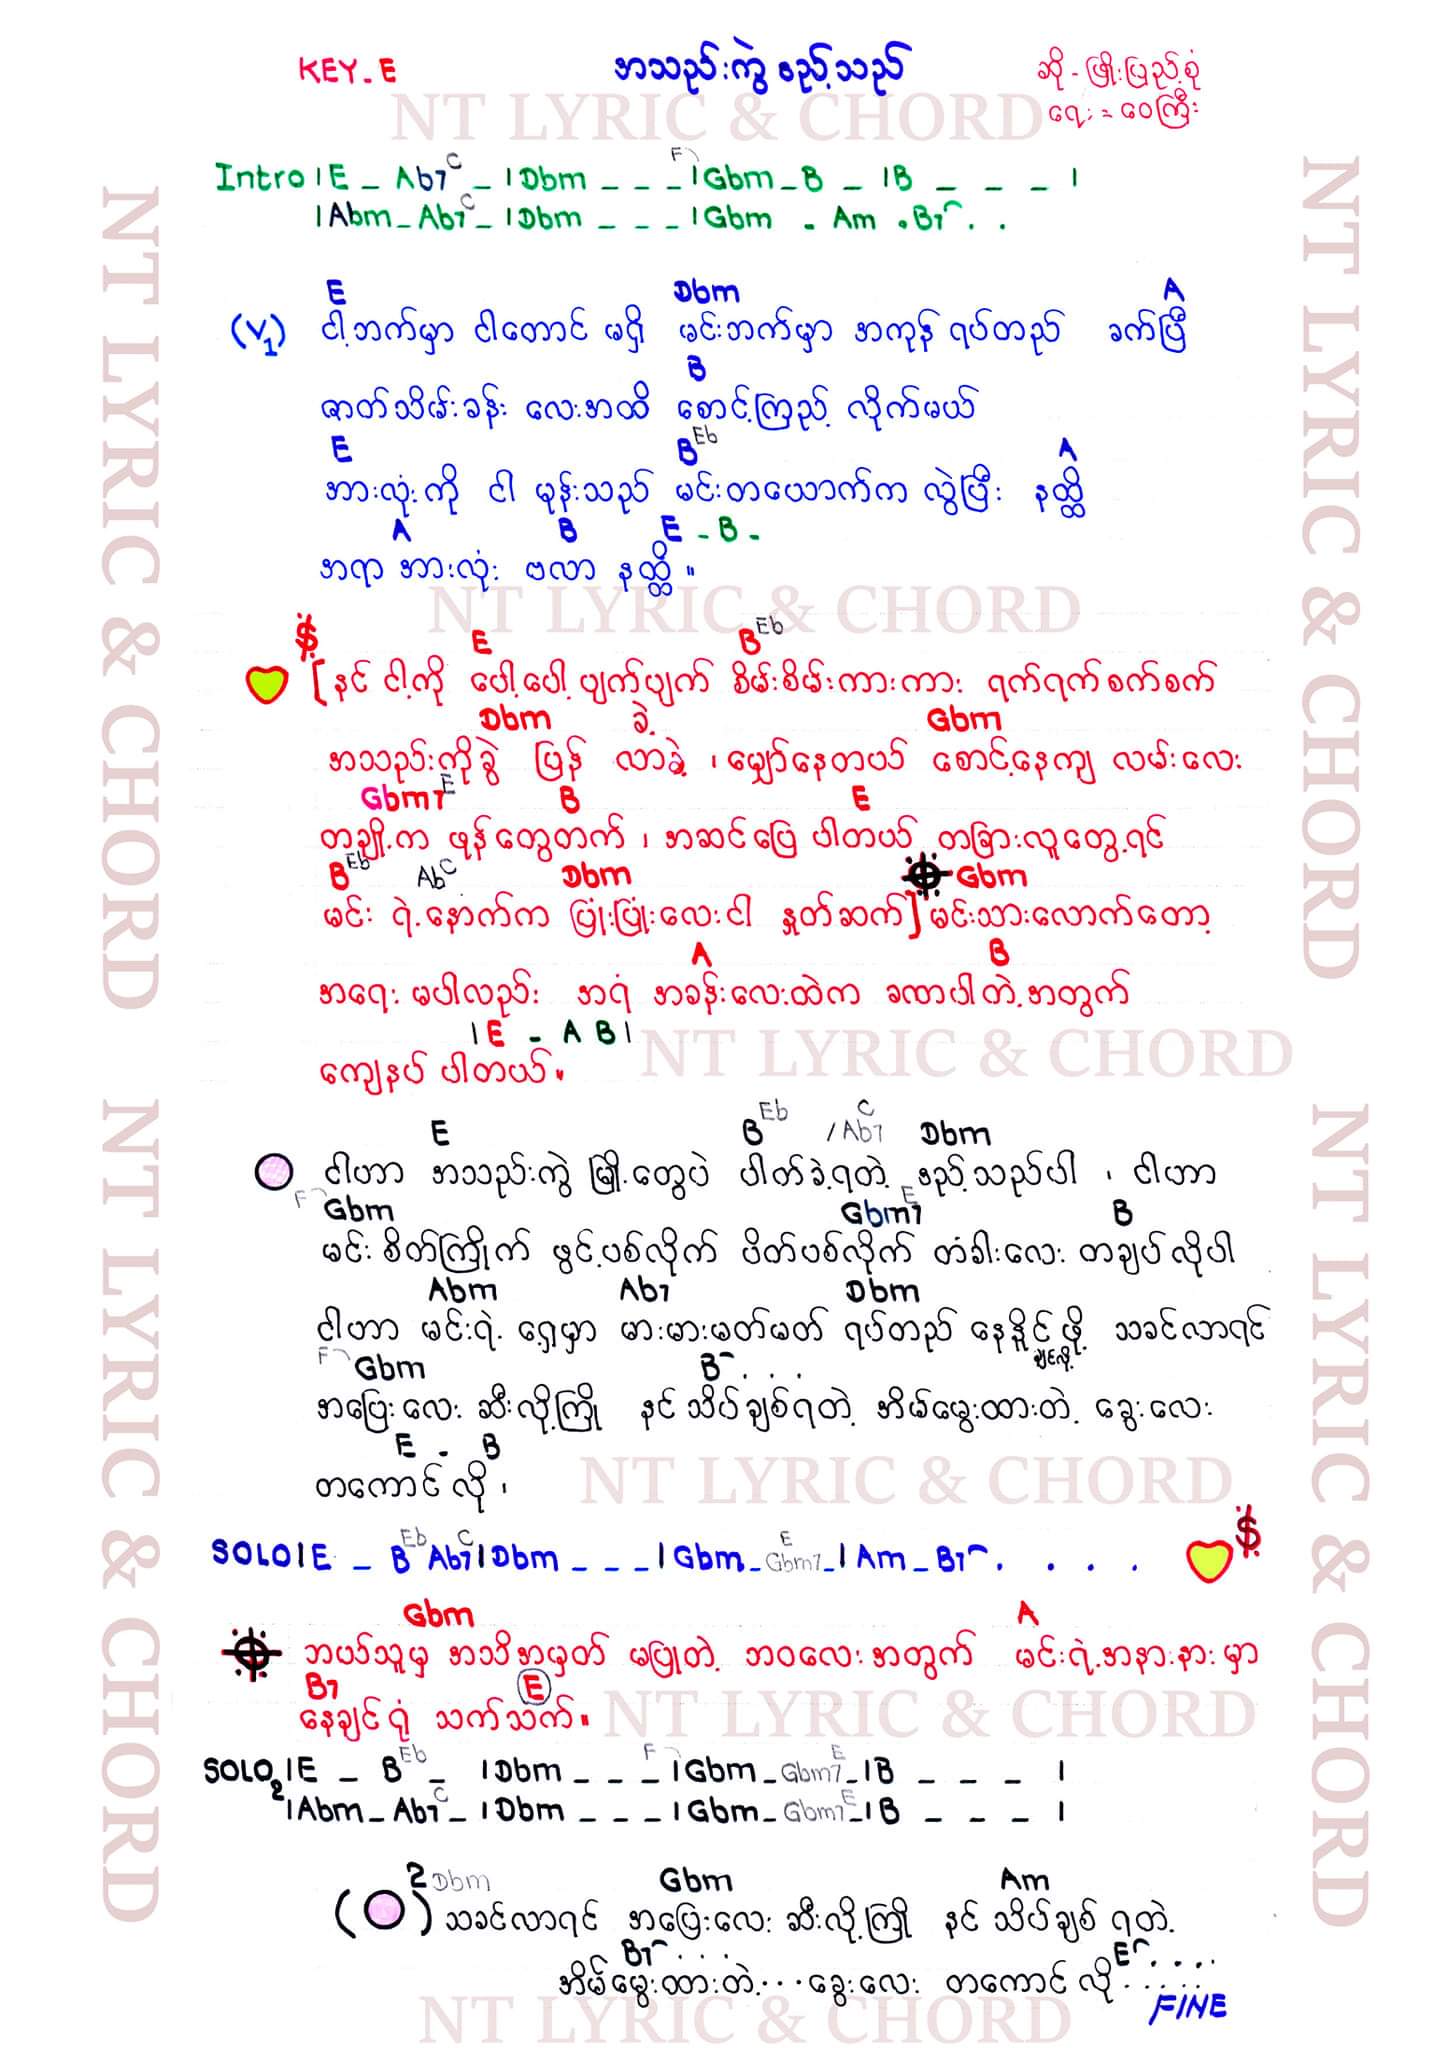 KEY - E
အသည်းကွဲ ဧည့်သည်
ဆို - ဖြိုးပြည့်စုံ
ရေး = ဝေကြီး
NT LYRIC & CHORD
Intro | E _ Ab7 C _ | Dbm _ _ _ F | Gbm _ B _ | B _ _ _ |
| Abm _ Ab7 C _ | Dbm _ _ _ | Gbm . Am . B7 . .
E Dbm A
(V1) ငါ့ဘက်မှာ ငါတောင် မရှိ မင်းဘက်မှာ အကုန် ရပ်တည် ခက်ပြီ
B
ဇာတ်သိမ်းခန်း လေးအထိ စောင့်ကြည့် လိုက်မယ်
E B Eb A
အားလုံးကို ငါ မုန်းသည် မင်းတယောက်က လွဲပြီး နတ္ထိ
A B E - B -
အရာ အားလုံး ဗလာ နတ္ထိ ။
NT LYRIC & CHORD
$ E B Eb
[ နင် ငါ့ကို ပေါ့ပေါ့ပျက်ပျက် စိမ်းစိမ်းကားကား ရက်ရက်စက်စက်
Dbm ခဲ့ Gbm
အသည်းကိုခွဲ ပြန် လာခဲ့ ၊ မျှော်နေတယ် စောင့်နေကျ လမ်းလေး
Gbm7 E B E
တချို့က ဖုန်တွေတက် ၊ အဆင်ပြေ ပါတယ် တခြားလူတွေ့ရင်
B Eb Ab C Dbm Gbm
မင်း ရဲ့နောက်က ပြုံးပြုံးလေးငါ နှုတ်ဆက် ] မင်းသားလောက်တော့
A B
အရေး မပါလည်း အရံ အခန်းလေးထဲက ခဏပါတဲ့အတွက်
| E - A B |
ကျေနပ် ပါတယ် ။
NT LYRIC & CHORD
E B Eb / Ab7 C Dbm
ငါဟာ အသည်းကွဲ မြို့တွေပဲ ပါတ်ခဲ့ရတဲ့ ဧည့်သည်ပါ ၊ ငါဟာ
F Gbm Gbm7 E B
မင်း စိတ်ကြိုက် ဖွင့်ပစ်လိုက် ပိတ်ပစ်လိုက် တံခါးလေး တချပ်လိုပါ
Abm Ab7 Dbm
ငါဟာ မင်းရဲ့ ရှေ့မှာ မားမားမတ်မတ် ရပ်တည် နေနိူင်ဖို့ သခင်လာရင်
F Gbm B . . .
အပြေးလေး ဆီးလို့ကြို နင် သိပ်ချစ်ရတဲ့ အိမ်မွေးထားတဲ့ ခွေးလေး
E - B
တကောင်လို ၊
NT LYRIC & CHORD
SOLO | E _ B Eb Ab7 C | Dbm _ _ _ | Gbm _ Gbm7 E _ | Am _ B7 . . . . $
Gbm A
ဘယ်သူမှ အသိအမှတ် မပြုတဲ့ ဘဝလေးအတွက် မင်းရဲ့အနားနားမှာ
B7 E
နေချင်ရုံ သက်သက် ။
NT LYRIC & CHORD
SOLO2 | E _ B Eb _ | Dbm _ _ _ F | Gbm _ Gbm7 E _ | B _ _ _ |
| Abm _ Ab7 C _ | Dbm _ _ _ | Gbm _ Gbm7 E _ | B _ _ _ |
2 Dbm Gbm Am
( ) သခင်လာရင် အပြေးလေး ဆီးလို့ကြို နင် သိပ်ချစ် ရတဲ့
B7 . . . E . . . .
အိမ်မွေးထားတဲ့ . . . ခွေးလေး တကောင်လို . . . . .
FINE
NT LYRIC & CHORD
NT LYRIC & CHORD
NT LYRIC & CHORD
NT LYRIC & CHORD
NT LYRIC & CHORD